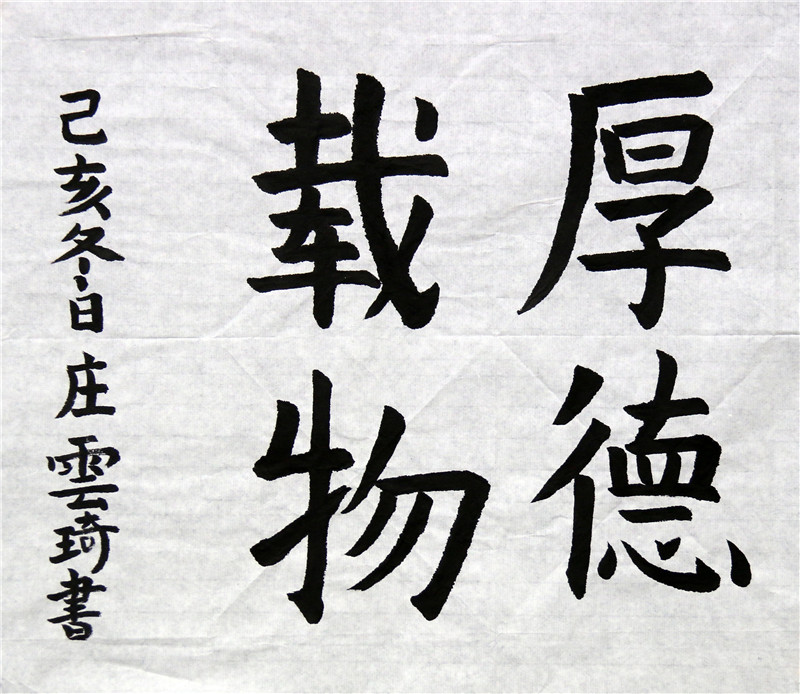 厚德
载物
己亥冬日庄雲琦書